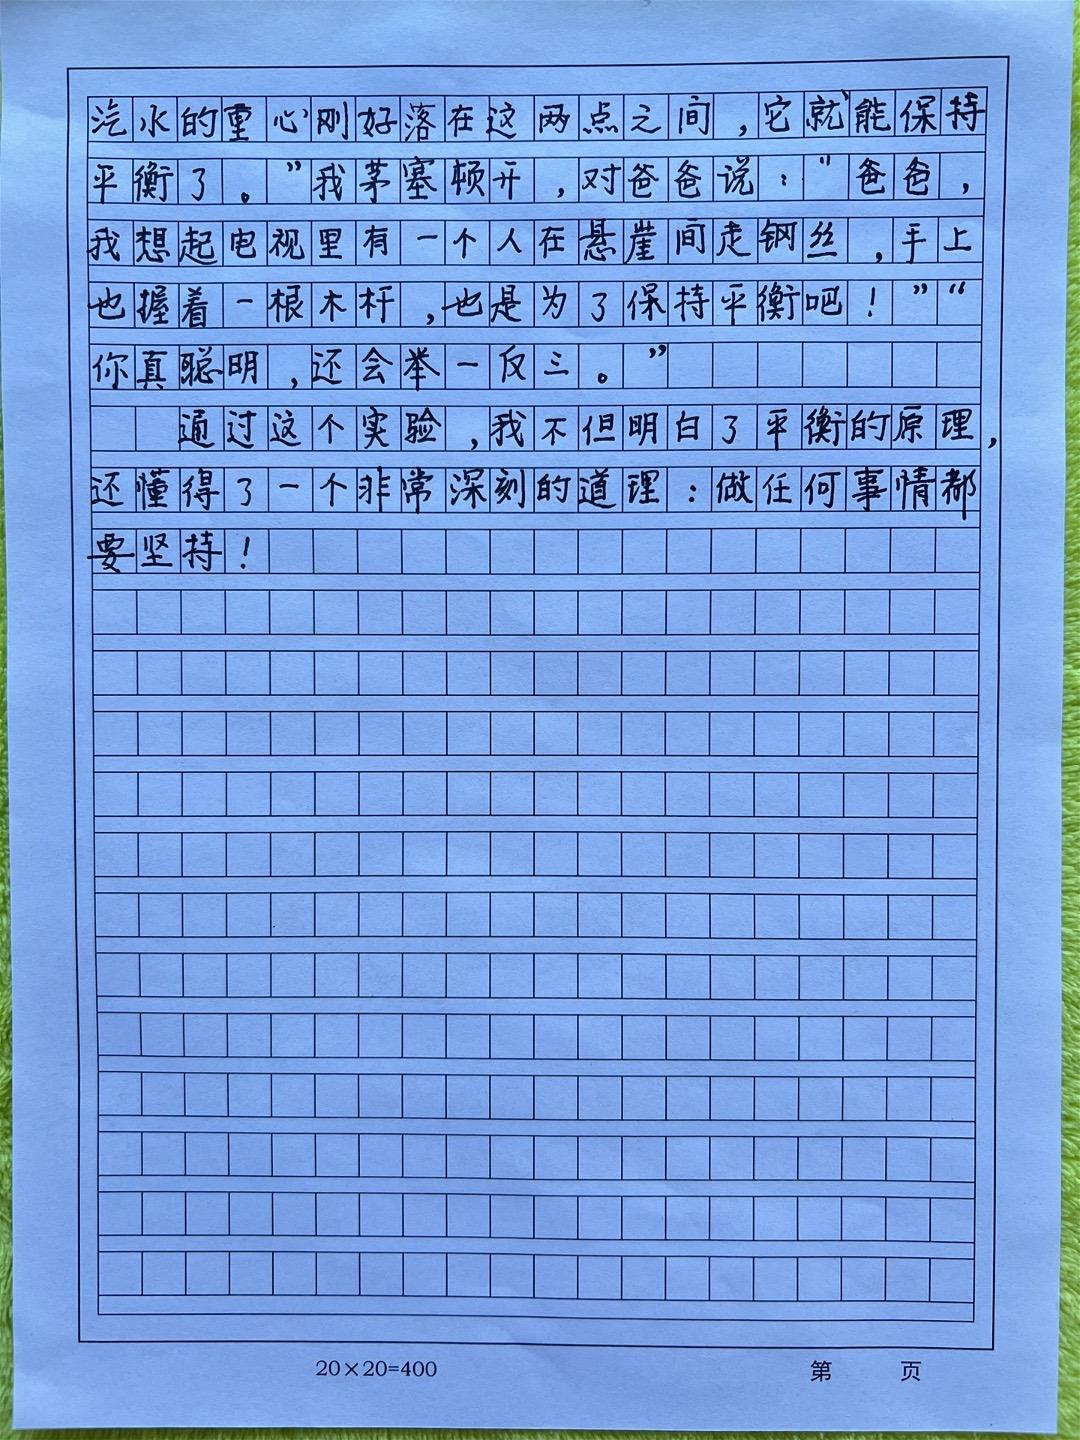 汽水的重心刚好落在这两点之间，它就能保持
平衡了。”我茅塞顿开，对爸爸说：“爸爸，
我想起电视里有一个人在悬崖间走钢丝，手上
也握着一根木杆，也是为了保持平衡吧！”“
你真聪明，还会举一反三。”
通过这个实验，我不但明白了平衡的原理，
还懂得了一个非常深刻的道理：做任何事情都
要坚持！
20×20=400
第 页